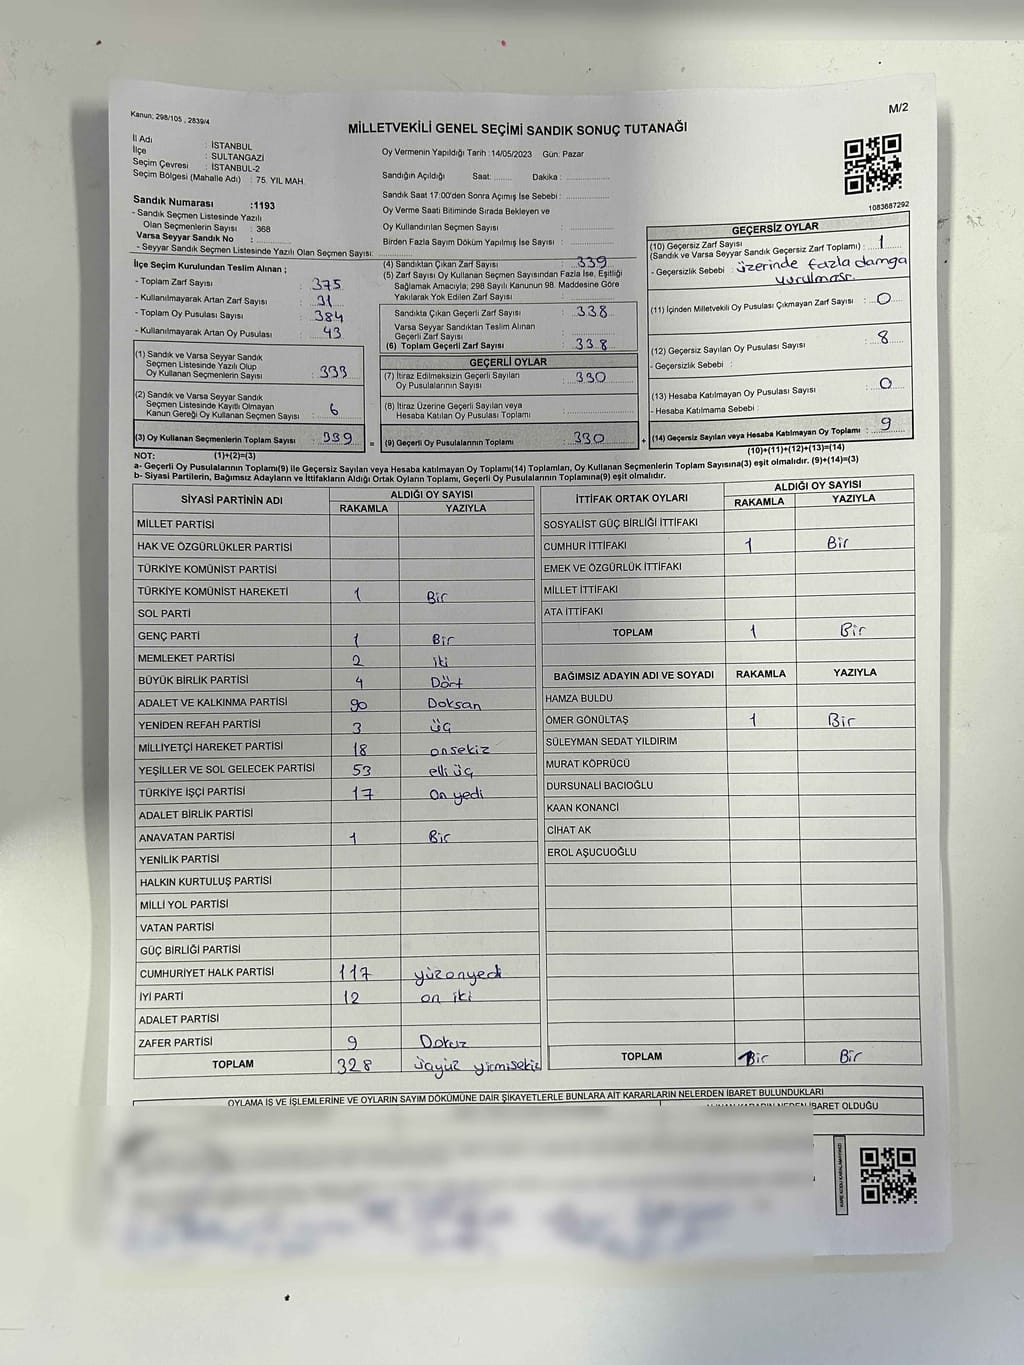 Kanun; 298/105 , 2839/4
M/2
MİLLETVEKİLİ GENEL SEÇİMİ SANDIK SONUÇ TUTANAĞI
İl Adı : İSTANBUL
İlçe : SULTANGAZİ
Seçim Çevresi : İSTANBUL-2
Seçim Bölgesi (Mahalle Adı) : 75. YIL MAH.
Sandık Numarası :1193
- Sandık Seçmen Listesinde Yazılı
Olan Seçmenlerin Sayısı : 368
Varsa Seyyar Sandık No :
- Seyyar Sandık Seçmen Listesinde Yazılı Olan Seçmen Sayısı:
Oy Vermenin Yapıldığı Tarih :14/05/2023 Gün: Pazar
Sandığın Açıldığı Saat: Dakika :
Sandık Saat 17:00'den Sonra Açımış İse Sebebi :
Oy Verme Saati Bitiminde Sırada Bekleyen ve
Oy Kullandırılan Seçmen Sayısı :
Birden Fazla Sayım Döküm Yapılmış İse Sayısı :
1083687292
İlçe Seçim Kurulundan Teslim Alınan ;
- Toplam Zarf Sayısı : 375
- Kullanılmayarak Artan Zarf Sayısı : 31
- Toplam Oy Pusulası Sayısı : 384
- Kullanılmayarak Artan Oy Pusulası : 43
(1) Sandık ve Varsa Seyyar Sandık
Seçmen Listesinde Yazılı Olup
Oy Kullanan Seçmenlerin Sayısı : 333
(2) Sandık ve Varsa Seyyar Sandık
Seçmen Listesinde Kayıtlı Olmayan
Kanun Gereği Oy Kullanan Seçmen Sayısı : 6
(3) Oy Kullanan Seçmenlerin Toplam Sayısı : 339
(4) Sandıktan Çıkan Zarf Sayısı : 339
(5) Zarf Sayısı Oy Kullanan Seçmen Sayısından Fazla İse, Eşitliği
Sağlamak Amacıyla; 298 Sayılı Kanunun 98. Maddesine Göre
Yakılarak Yok Edilen Zarf Sayısı :
Sandıkta Çıkan Geçerli Zarf Sayısı : 338
Varsa Seyyar Sandıktan Teslim Alınan
Geçerli Zarf Sayısı :
(6) Toplam Geçerli Zarf Sayısı : 338
GEÇERLİ OYLAR
(7) İtiraz Edilmeksizin Geçerli Sayılan
Oy Pusulalarının Sayısı : 330
(8) İtiraz Üzerine Geçerli Sayılan veya
Hesaba Katılan Oy Pusulası Toplamı :
= (9) Geçerli Oy Pusulalarının Toplamı : 330
GEÇERSİZ OYLAR
(10) Geçersiz Zarf Sayısı
(Sandık ve Varsa Seyyar Sandık Geçersiz Zarf Toplamı) : 1
- Geçersizlik Sebebi : üzerinde fazla damga
vurulması
(11) İçinden Milletvekili Oy Pusulası Çıkmayan Zarf Sayısı : 0
(12) Geçersiz Sayılan Oy Pusulası Sayısı : 8
- Geçersizlik Sebebi :
(13) Hesaba Katılmayan Oy Pusulası Sayısı : 0
- Hesaba Katılmama Sebebi :
+ (14) Geçersiz Sayılan veya Hesaba Katılmayan Oy Toplamı : 9
NOT: (1)+(2)=(3) (10)+(11)+(12)+(13)=(14)
a- Geçerli Oy Pusulalarının Toplamı(9) ile Geçersiz Sayılan veya Hesaba katılmayan Oy Toplamı(14) Toplamları, Oy Kullanan Seçmenlerin Toplam Sayısına(3) eşit olmalıdır. (9)+(14)=(3)
b- Siyasi Partilerin, Bağımsız Adayların ve İttifakların Aldığı Ortak Oyların Toplamı, Geçerli Oy Pusulalarının Toplamına(9) eşit olmalıdır.
SİYASİ PARTİNİN ADI ALDIĞI OY SAYISI
RAKAMLA YAZIYLA
MİLLET PARTİSİ
HAK VE ÖZGÜRLÜKLER PARTİSİ
TÜRKİYE KOMÜNİST PARTİSİ
TÜRKİYE KOMÜNİST HAREKETİ 1 Bir
SOL PARTİ
GENÇ PARTİ 1 Bir
MEMLEKET PARTİSİ 2 iki
BÜYÜK BİRLİK PARTİSİ 4 Dört
ADALET VE KALKINMA PARTİSİ 90 Doksan
YENİDEN REFAH PARTİSİ 3 üç
MİLLİYETÇİ HAREKET PARTİSİ 18 onsekiz
YEŞİLLER VE SOL GELECEK PARTİSİ 53 elli üç
TÜRKİYE İŞÇİ PARTİSİ 17 On yedi
ADALET BİRLİK PARTİSİ
ANAVATAN PARTİSİ 1 Bir
YENİLİK PARTİSİ
HALKIN KURTULUŞ PARTİSİ
MİLLİ YOL PARTİSİ
VATAN PARTİSİ
GÜÇ BİRLİĞİ PARTİSİ
CUMHURİYET HALK PARTİSİ 117 yüzonyedi
İYİ PARTİ 12 on iki
ADALET PARTİSİ
ZAFER PARTİSİ 9 Dokuz
TOPLAM 328 üçyüz yirmisekiz
İTTİFAK ORTAK OYLARI ALDIĞI OY SAYISI
RAKAMLA YAZIYLA
SOSYALİST GÜÇ BİRLİĞİ İTTİFAKI
CUMHUR İTTİFAKI 1 Bir
EMEK VE ÖZGÜRLÜK İTTİFAKI
MİLLET İTTİFAKI
ATA İTTİFAKI
TOPLAM 1 Bir
BAĞIMSIZ ADAYIN ADI VE SOYADI RAKAMLA YAZIYLA
HAMZA BULDU
ÖMER GÖNÜLTAŞ 1 Bir
SÜLEYMAN SEDAT YILDIRIM
MURAT KÖPRÜCÜ
DURSUNALİ BACIOĞLU
KAAN KONANCİ
CİHAT AK
EROL AŞUCUOĞLU
TOPLAM Bir Bir
OYLAMA İŞ VE İŞLEMLERİNE VE OYLARIN SAYIM DÖKÜMÜNE DAİR ŞİKAYETLERLE BUNLARA AİT KARARLARIN NELERDEN İBARET BULUNDUKLARI
İBARET OLDUĞU